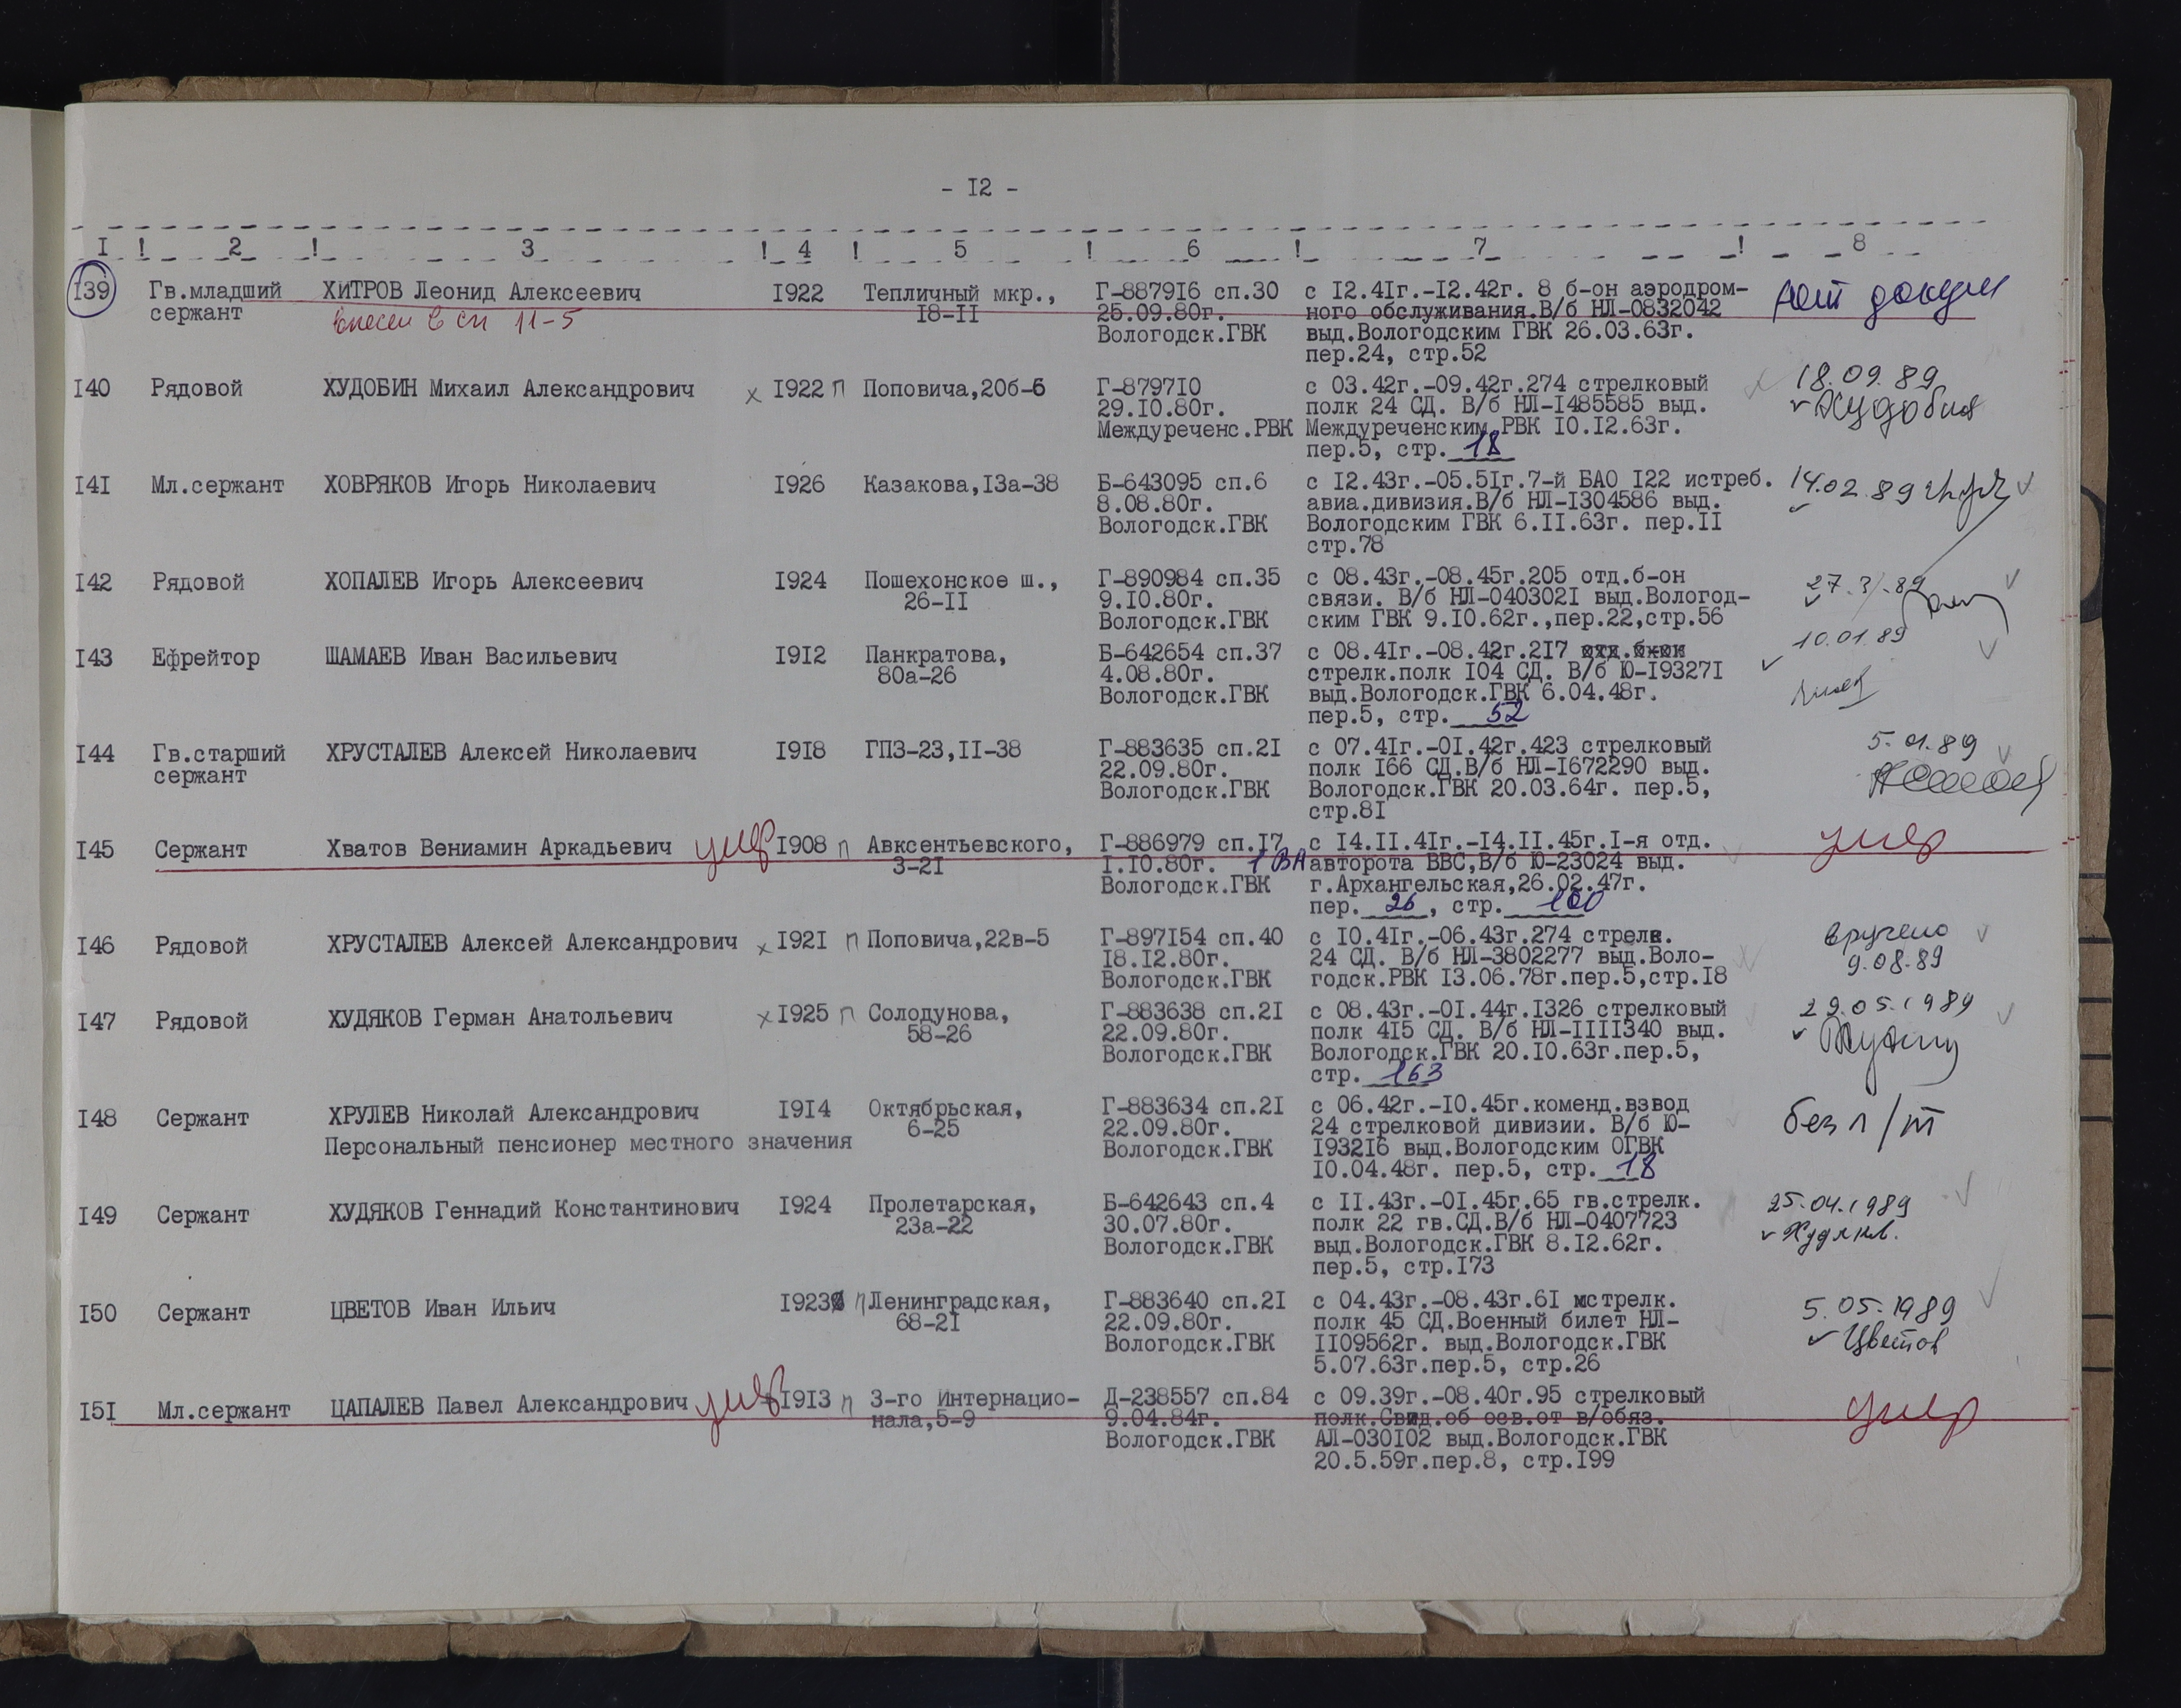 - I2 -
I ! 2 ! 3 ! 4 ! 5 ! 6 ! 7 ! 8
I39 Гв.младший ХИТРОВ Леонид Алексеевич I922 Тепличный мкр., Г-8879I6 сп.30 с I2.4Iг.-I2.42г. 8 б-он аэродром- нет докум
сержант внесен в сп 11-5 I8-II 25.09.80г. ного обслуживания.В/б НЛ-0832042
Вологодск.ГВК выд.Вологодским ГВК 26.03.63г.
пер.24, стр.52
I40 Рядовой ХУДОБИН Михаил Александрович x I922 п Поповича,20б-6 Г-8797I0 с 03.42г.-09.42г.274 стрелковый 18.09.89
29.I0.80г. полк 24 СД. В/б НЛ-I485585 выд. Худобин
Междуреченс.РВК Междуреченским РВК I0.I2.63г.
пер.5, стр. 18
I4I Мл.сержант ХОВРЯКОВ Игорь Николаевич I926 Казакова,I3а-38 Б-643095 сп.6 с I2.43г.-05.5Iг.7-й БАО I22 истреб. 14.02.89
8.08.80г. авиа.дивизия.В/б НЛ-I304586 выд.
Вологодск.ГВК Вологодским ГВК 6.II.63г. пер.II
стр.78
I42 Рядовой ХОПАЛЕВ Игорь Алексеевич I924 Пошехонское ш., Г-890984 сп.35 с 08.43г.-08.45г.205 отд.б-он 27.3.89
26-II 9.I0.80г. связи. В/б НЛ-040302I выд.Вологод-
Вологодск.ГВК ским ГВК 9.I0.62г.,пер.22,стр.56
I43 Ефрейтор ШАМАЕВ Иван Васильевич I9I2 Панкратова, Б-642654 сп.37 с 08.4Iг.-08.42г.2I7 отд.б-он 10.01.89
80а-26 4.08.80г. стрелк.полк I04 СД. В/б Ю-I9327I
Вологодск.ГВК выд.Вологодск.ГВК 6.04.48г.
пер.5, стр. 52
I44 Гв.старший ХРУСТАЛЕВ Алексей Николаевич I9I8 ГПЗ-23,II-38 Г-883635 сп.2I с 07.4Iг.-0I.42г.423 стрелковый 5.01.89
сержант 22.09.80г. полк I66 СД.В/б НЛ-I672290 выд.
Вологодск.ГВК Вологодск.ГВК 20.03.64г. пер.5,
стр.8I
I45 Сержант Хватов Вениамин Аркадьевич умер I908 п Авксентьевского, Г-886979 сп.I7 с I4.II.4Iг.-I4.II.45г.I-я отд. умер
3-2I I.I0.80г. 1 ВА авторота ВВС,В/б Ю-23024 выд.
Вологодск.ГВК г.Архангельская,26.02.47г.
пер. 26, стр. 100
I46 Рядовой ХРУСТАЛЕВ Алексей Александрович x I92I п Поповича,22в-5 Г-897I54 сп.40 с I0.4Iг.-06.43г.274 стрелк. вручено
I8.I2.80г. 24 СД. В/б НЛ-3802277 выд.Воло- 9.08.89
Вологодск.ГВК годск.РВК I3.06.78г.пер.5,стр.I8
I47 Рядовой ХУДЯКОВ Герман Анатольевич x I925 п Солодунова, Г-883638 сп.2I с 08.43г.-0I.44г.I326 стрелковый 29.05.1989
58-26 22.09.80г. полк 4I5 СД. В/б НЛ-IIII340 выд.
Вологодск.ГВК Вологодск.ГВК 20.I0.63г.пер.5,
стр. 163
I48 Сержант ХРУЛЕВ Николай Александрович I9I4 Октябрьская, Г-883634 сп.2I с 06.42г.-I0.45г.коменд.взвод без л/т
6-25 22.09.80г. 24 стрелковой дивизии. В/б Ю-
Персональный пенсионер местного значения Вологодск.ГВК I932I6 выд.Вологодским ОГВК
I0.04.48г. пер.5, стр. 18
I49 Сержант ХУДЯКОВ Геннадий Константинович I924 Пролетарская, Б-642643 сп.4 с II.43г.-0I.45г.65 гв.стрелк. 25.04.1989
23а-22 30.07.80г. полк 22 гв.СД.В/б НЛ-0407723 Худяков.
Вологодск.ГВК выд.Вологодск.ГВК 8.I2.62г.
пер.5, стр.I73
I50 Сержант ЦВЕТОВ Иван Ильич I923 п Ленинградская, Г-883640 сп.2I с 04.43г.-08.43г.6I стрелк. 5.05.1989
68-2I 22.09.80г. полк 45 СД.Военный билет НЛ- Цветов
Вологодск.ГВК II09562г. выд.Вологодск.ГВК
5.07.63г.пер.5, стр.26
I5I Мл.сержант ЦАПАЛЕВ Павел Александрович умер I9I3 п 3-го Интернацио- Д-238557 сп.84 с 09.39г.-08.40г.95 стрелковый умер
нала,5-9 9.04.84г. полк.Свид.об осв.от в/обяз.
Вологодск.ГВК АЛ-030I02 выд.Вологодск.ГВК
20.5.59г.пер.8, стр.I99